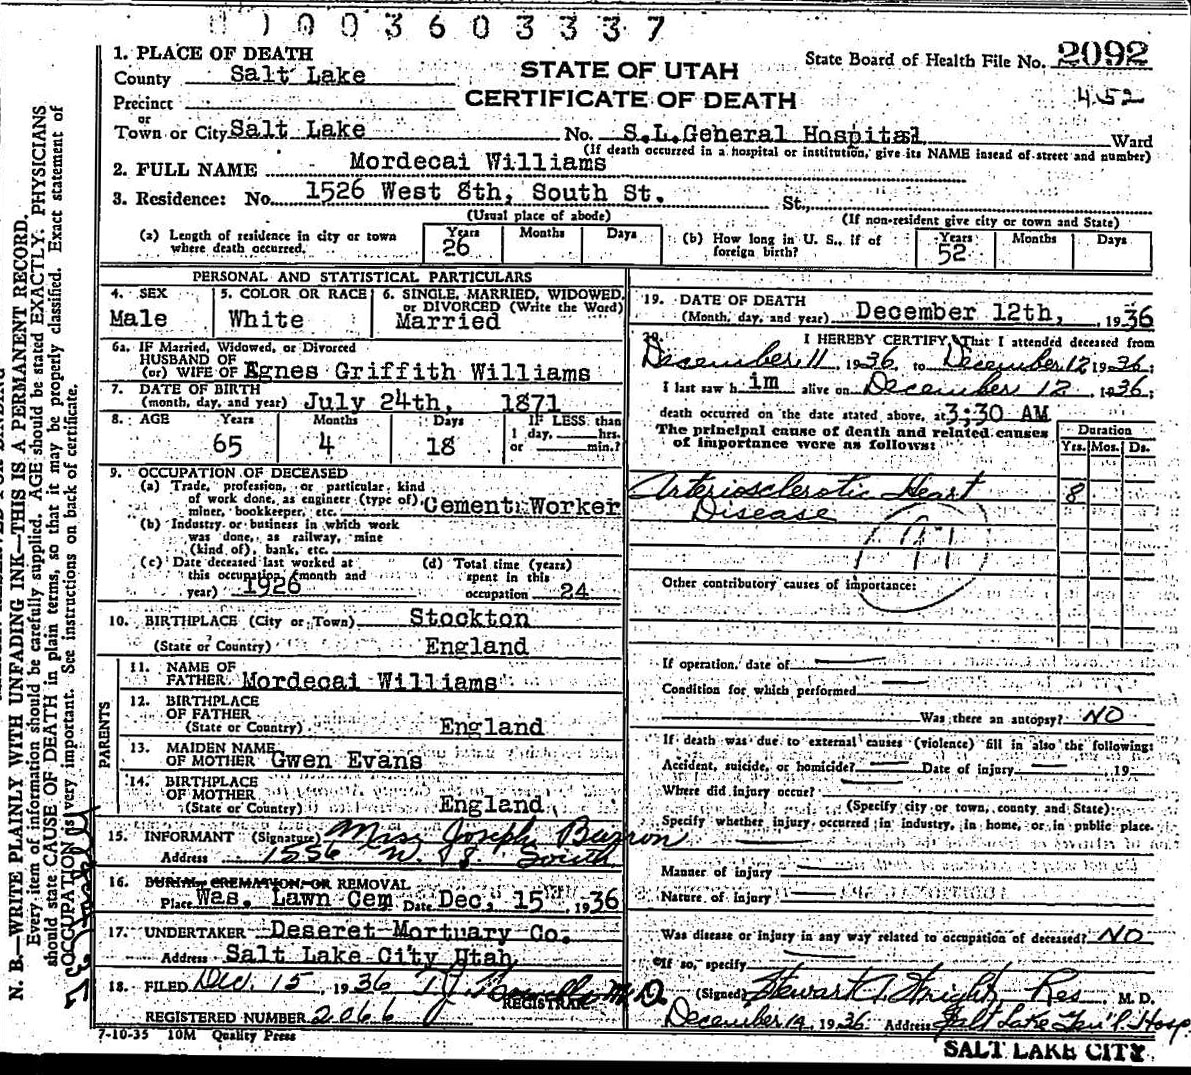 0 0 3 6 0 3 3 3 7
1. PLACE OF DEATH
County Salt Lake
STATE OF UTAH
State Board of Health File No. 2092
Precinct
or
CERTIFICATE OF DEATH
452
Town or City Salt Lake No. S.L. General Hospital Ward
(If death occurred in a hospital or institution, give its NAME instead of street and number)
2. FULL NAME Mordecai Williams
3. Residence: No. 1526 West 8th, South St. St.,
(Usual place of abode) (If non-resident give city or town and State)
(a) Length of residence in city or town where death occurred. Years 26 Months Days
(b) How long in U. S., if of foreign birth? Years 52 Months Days
PERSONAL AND STATISTICAL PARTICULARS
4. SEX
Male
5. COLOR OR RACE
White
6. SINGLE, MARRIED, WIDOWED, or DIVORCED (Write the Word)
Married
6a. IF Married, Widowed, or Divorced
HUSBAND OF
(or) WIFE OF Egnes Griffith Williams
7. DATE OF BIRTH
(month, day, and year) July 24th, 1871
8. AGE Years Months Days IF LESS than
65 4 18
1 day, hrs.
or min.?
9. OCCUPATION OF DECEASED
(a) Trade, profession, or particular kind
of work done, as engineer (type of)
miner, bookkeeper, etc. Cement Worker
(b) Industry or business in which work
was done, as railway, mine
(kind of), bank, etc.
(c) Date deceased last worked at
this occupation (month and
year) 1926
(d) Total time (years)
spent in this
occupation 24
10. BIRTHPLACE (City or Town) Stockton
(State or Country) England
PARENTS
11. NAME OF
FATHER Mordecai Williams
12. BIRTHPLACE
OF FATHER
(State or Country) England
13. MAIDEN NAME
OF MOTHER Gwen Evans
14. BIRTHPLACE
OF MOTHER
(State or Country) England
15. INFORMANT (Signature) Mrs. Joseph Barron
Address 1536 W. 8. South
16. BURIAL, CREMATION, OR REMOVAL
Place Was. Lawn Cem Date Dec, 15 1936
17. UNDERTAKER Deseret Mortuary Co.
Address Salt Lake City Utah
18. FILED Dec. 15, 1936 T.J. M.D.
REGISTRAR
REGISTERED NUMBER 2066
7-10-35 10M Quality Press
19. DATE OF DEATH
(Month, day, and year) December 12th, 1936
20. I HEREBY CERTIFY, That I attended deceased from
December 11 1936 to December 12 1936;
I last saw h im alive on December 12, 1936;
death occurred on the date stated above, at 3;30 AM
The principal cause of death and related causes
of importance were as follows:
Duration
Yrs. Mos. Ds.
Arteriosclerotic Heart 8
Disease
Other contributory causes of importance:
If operation, date of
Condition for which performed
Was there an autopsy? NO
If death was due to external causes (violence) fill in also the following:
Accident, suicide, or homicide? Date of injury , 19
Where did injury occur?
(Specify city or town, county and State)
Specify whether injury occurred in industry, in home, or in public place.
Manner of injury
Nature of injury
Was disease or injury in any way related to occupation of deceased? NO
If so, specify
(Signed) Stewart T. Wright, Res. M. D.
December 14, 1936 Address Salt Lake Gen'l. Hosp
SALT LAKE CITY
N. B.—WRITE PLAINLY WITH UNFADING INK—THIS IS A PERMANENT RECORD.
Every item of information should be carefully supplied. AGE should be stated EXACTLY. PHYSICIANS
should state CAUSE OF DEATH in plain terms, so that it may be properly classified. Exact statement of
OCCUPATION is very important. See instructions on back of certificate.